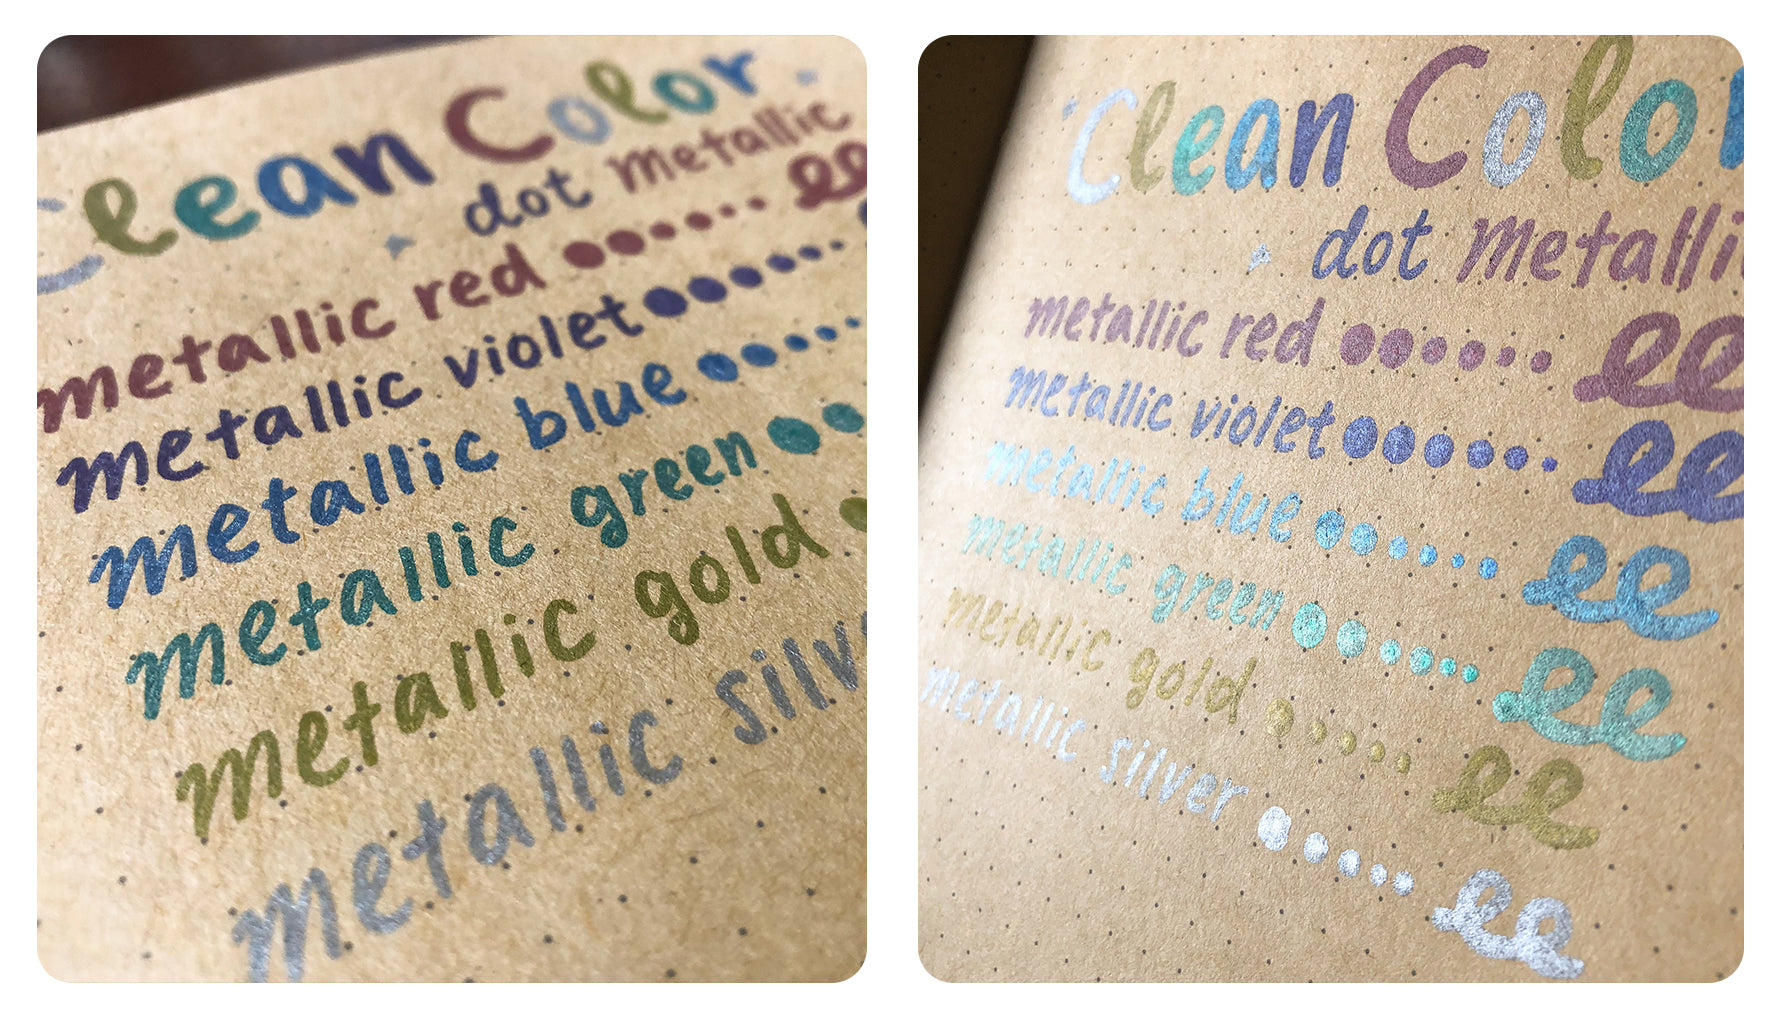 Clean Color
dot metallic
metallic red
metallic violet
metallic blue
metallic green
metallic gold
metallic silv
Clean Color
dot metalli
metallic red ee
metallic violet ee
metallic blue ee
metallic green ee
metallic gold ee
metallic silver ee